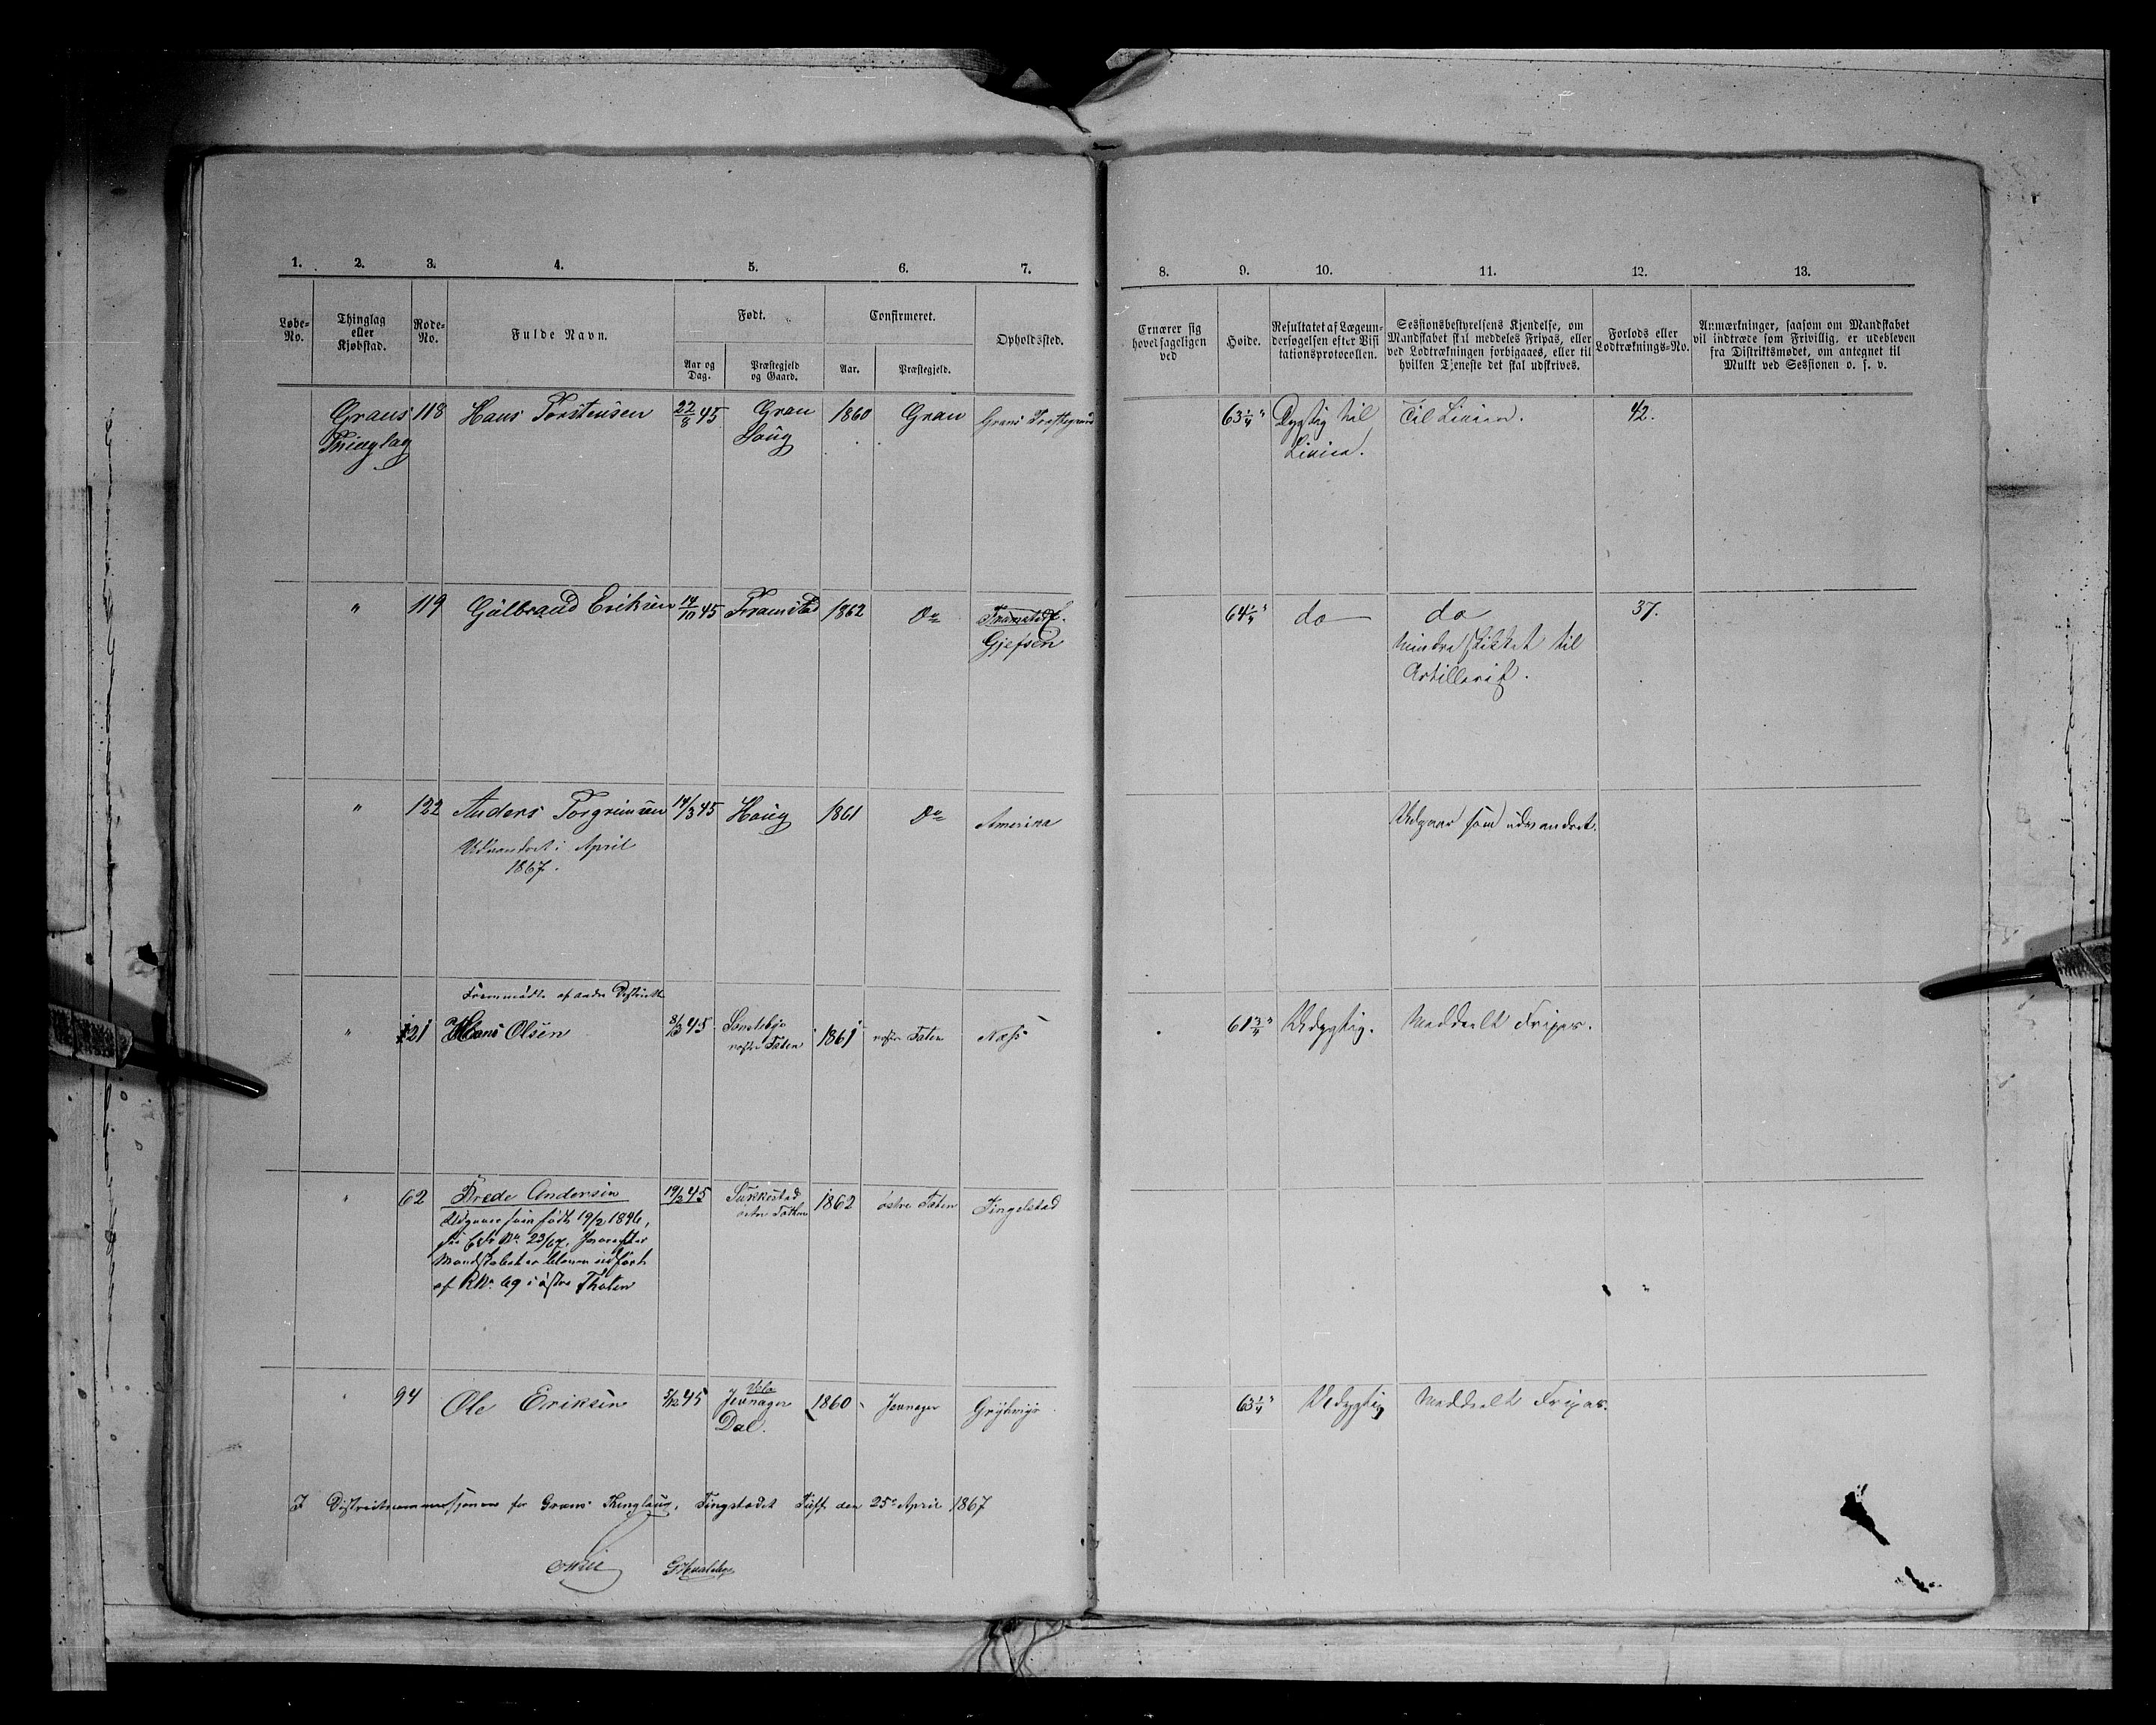 1. 2. 3. 4. 5. 6. 7.
Løbe-No. Thinglag eller Kjøbstad. Rode-No. Fulde Navn. Født. Confirmeret. Opholdssted.
Aar og Dag. Præstegjeld og Gaard. Aar. Præstegjeld.
8. 9. 10. 11. 12. 13.
Ernærer sig hovedsageligen ved
Høide.
Resultatet af Lægeundersøgelsen efter Visitationsprotocollen.
Sessionsbestyrelsens Kjendelse, om Mandskabet skal meddeles Fripas, eller ved Lodtrækningen forbigaaes, eller til hvilken Tjeneste det skal udskrives.
Forlods eller Lodtræknings-No.
Anmærkninger, saasom om Mandskabet vil indtræde som Frivillig, er udebleven fra Distriktsmødet, om antegnet til Mulkt ved Sessionen o. s. v.
Grans 118 Hans Torstensen 22/8 45 Gran 1860 Gran Grans
Thinglag Haug
63 1/4" Dygtig til Til Linien. 42.
Linien.
" 119 Gulbrand Eriksen 14/10 45 Framstad 1862 Do Framstad
Gjefsen
64 1/4" do do 37.
mindre skikket til
Artillerist.
" 122 Anders Torgrimsen 14/3 45 Haug 1861 Do Amerika
Udvandret i April
1867.
Udgaar som udvandret.
Fremmødte af andre Distrikter
" 121 Hans Olsen 8/3 45 1861 vestre Toten Næss
vestre Toten
61 3/4" Udygtig. Meddeelt Fripas.
" 62 Brede Andersen 19/2 45 Sukkestad 1862 østre Toten Tingelstad
østre Toten
Udgaaer som født 19/2 1846,
23/67.
Mandskabet er bleven udført
af RNo 69 i østre Thoten
" 94 Ole Eriksen 5/12 45 Jevnager 1860 Jevnager
Dal.
63 1/4" Udygtig Meddeelt Fripas.
I for Grans Thinglaug, Tingstedet den 25de April 1867